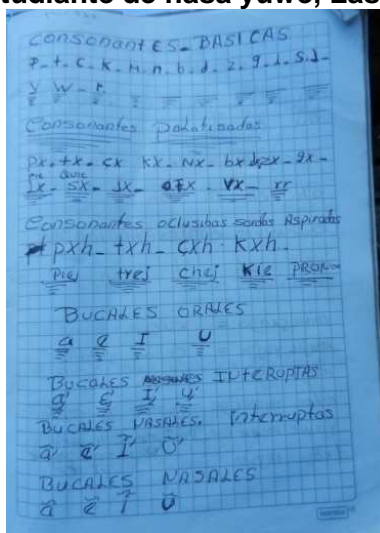 tudiante de nasa yuwe, Las
CONSONANTES- BASICAS
P- t- C- K- M- n- b- d- z- g- l- S- J-
y W- r
Consonantes palatizadas
px- tx- cx KX- NX- bx dx zx- gx-
lx- SX- JX- VX- rr
Consonantes oclusibas sordas Aspiradas
pxh- txh- cxh- kxh-
Piej trej chej Kie PRON
BUCALES ORALES
a e I U
BUCALES INTERUPTAS
a' e' I' u'
BUCALES NASALES. Interruptas
ã' ẽ' Ĩ' Ũ'
BUCALES NASALES
ã ẽ ĩ ũ